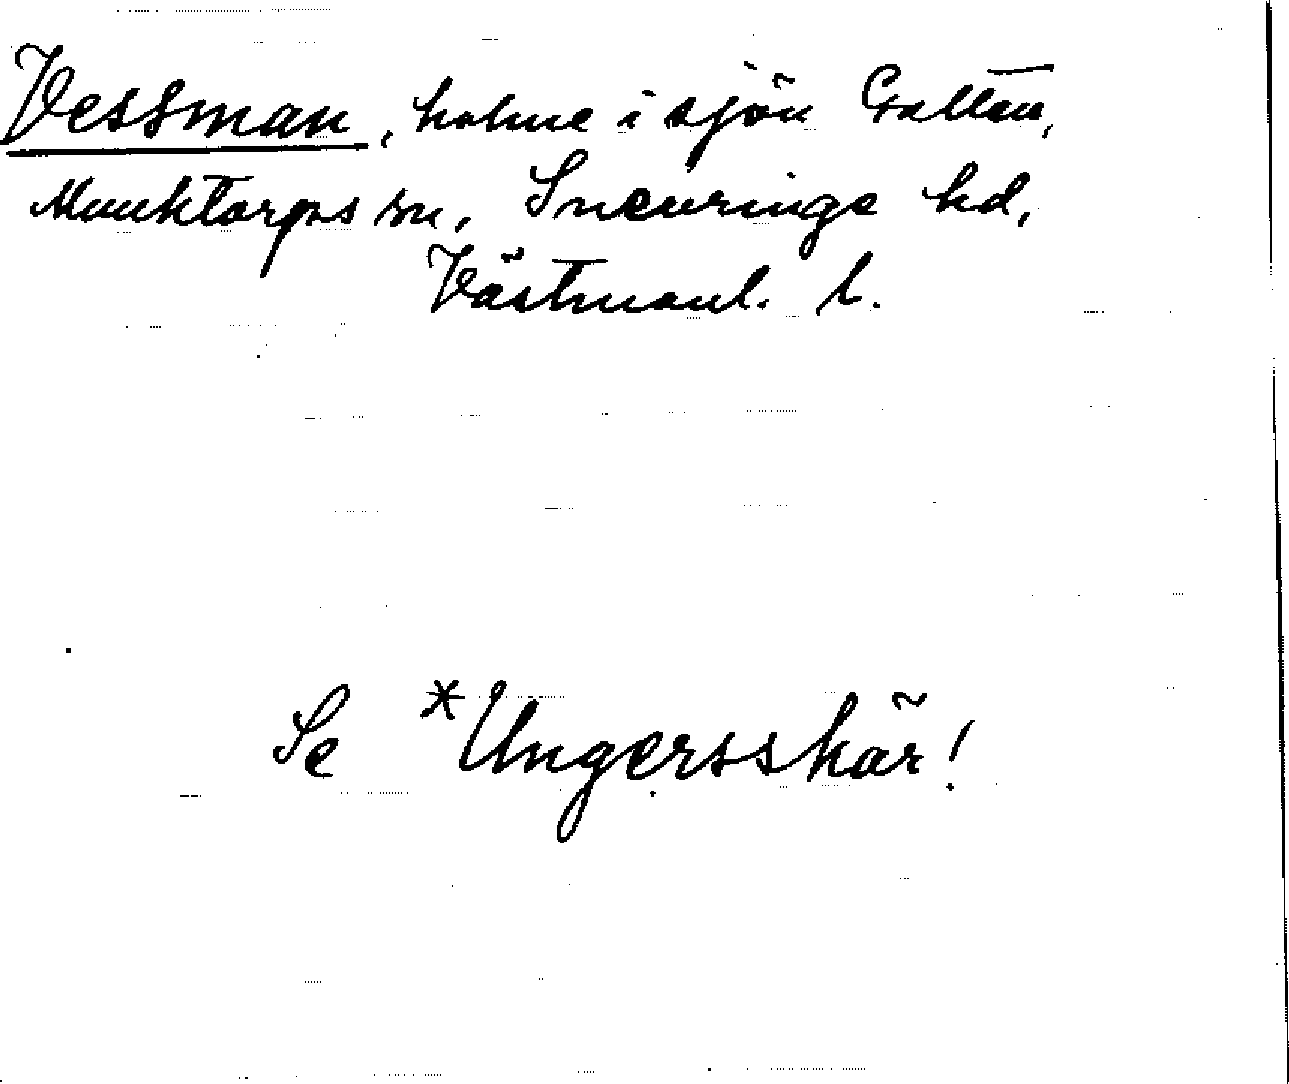 Vessman, holme i sjön Gallten,
Munktorps sn, Snevringe hd,
Västmanl. l.
Se *Ungersskär!